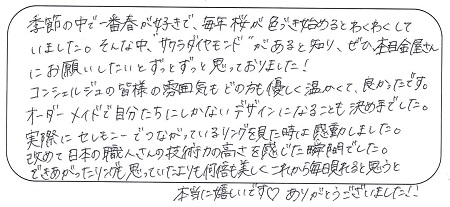 季節の中で一番春が好きで、毎年桜が色づき始めるとわくわくして
いました。そんな中、"サクラダイヤモンド"があると知り、ぜひ、杢目金屋さん
にお願いしたいとずっとずっと思っておりました!
コンシェルジュの皆様の雰囲気もどの方も優しく温かくて、良かったです。
オーダーメイドで自分たちにしかないデザインになることも決めてでした。
実際にセレモニーでつながっているリングを見た時は感動しました。
改めて日本の職人さんの技術力の高さを感じた瞬間でした。
できあがったリングも思っていたよりも何倍も美しくこれから毎日眺れると思うと
本当に嬉しいです♡ ありがとうございました!!